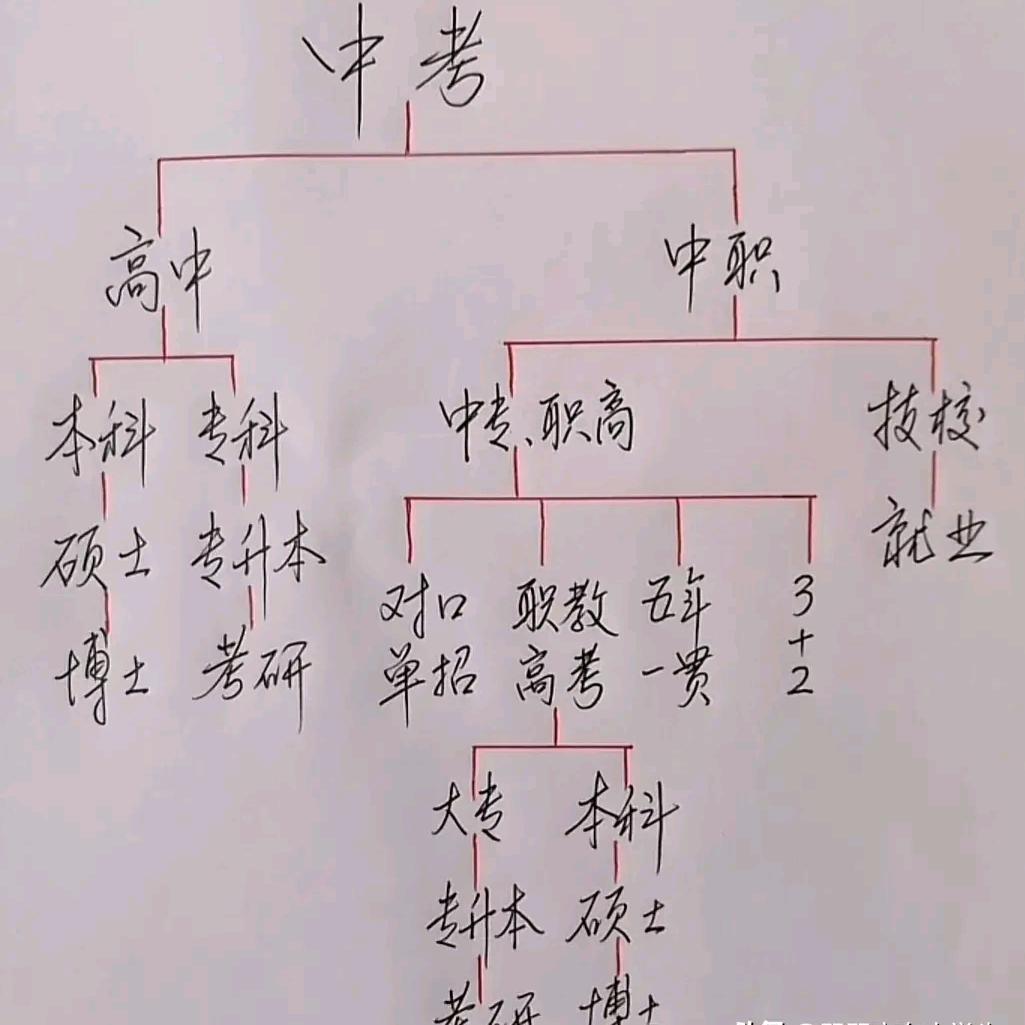 中考
高中 中职
本科 专科 中专、职高 技校
硕士 专升本 就业
对口 职教 五年 3
+
博士 考研 单招 高考 一贯 2
大专 本科
专升本 硕士
考研 博士